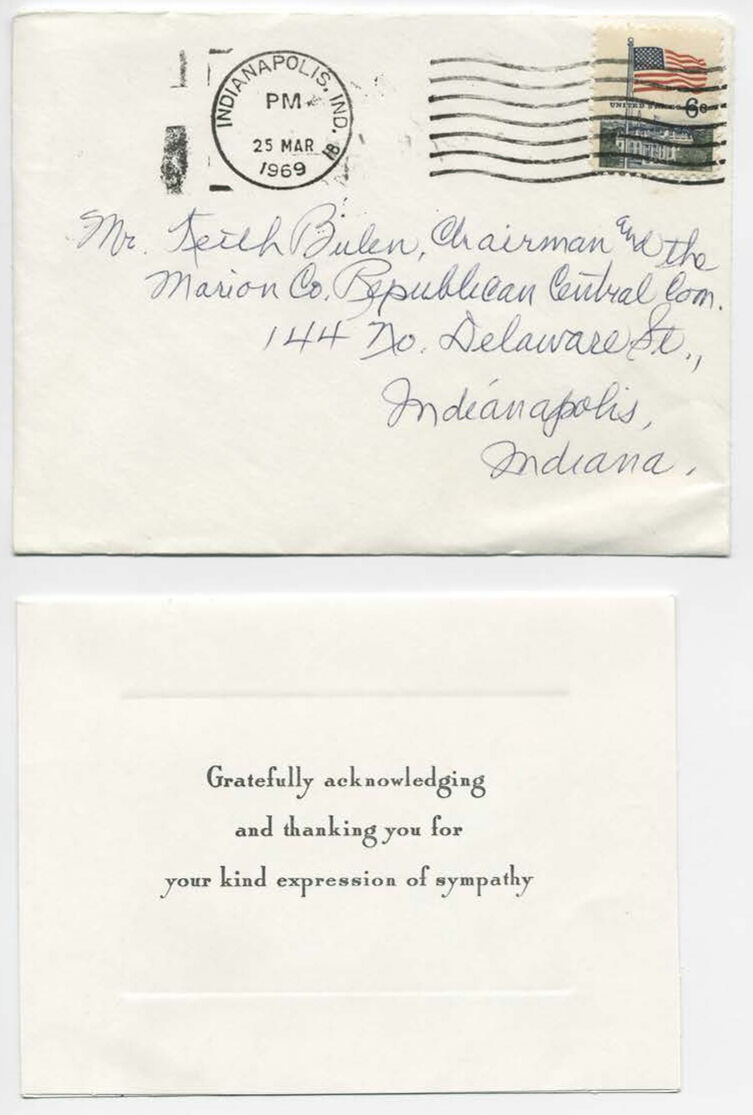 INDIANAPOLIS, IND. 18
PM
25 MAR
1969
UNITED STATES 6c
Mr. Keith Bulen, Chairman and the
Marion Co. Republican Central Com.
144 No. Delaware St.,
Indianapolis,
Indiana.
Gratefully acknowledging
and thanking you for
your kind expression of sympathy